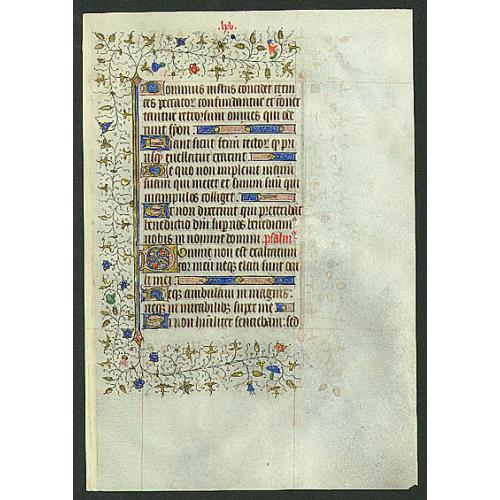 lxv.
Dominus iustus concidet cervi
ces peccator confundantur et conver
tantur retrorsum omnes qui ode
runt syon.
Fiant sicut fenu tector qd pri
usq evellatur exaruit.
De quo non implevit manu
suam qui metet et sinum suu qui
manipulos colliget.
Et non dixerunt qui preteribat
benedictio dni super vos benedicim
vobis in nomine domini. psalm
Domine non est exaltatum
cor meu neqz elati sunt ocu
li mei.
Neqz ambulavi in magnis:
neqz in mirabilibz super me
Si non humiliter sentiebam: sed